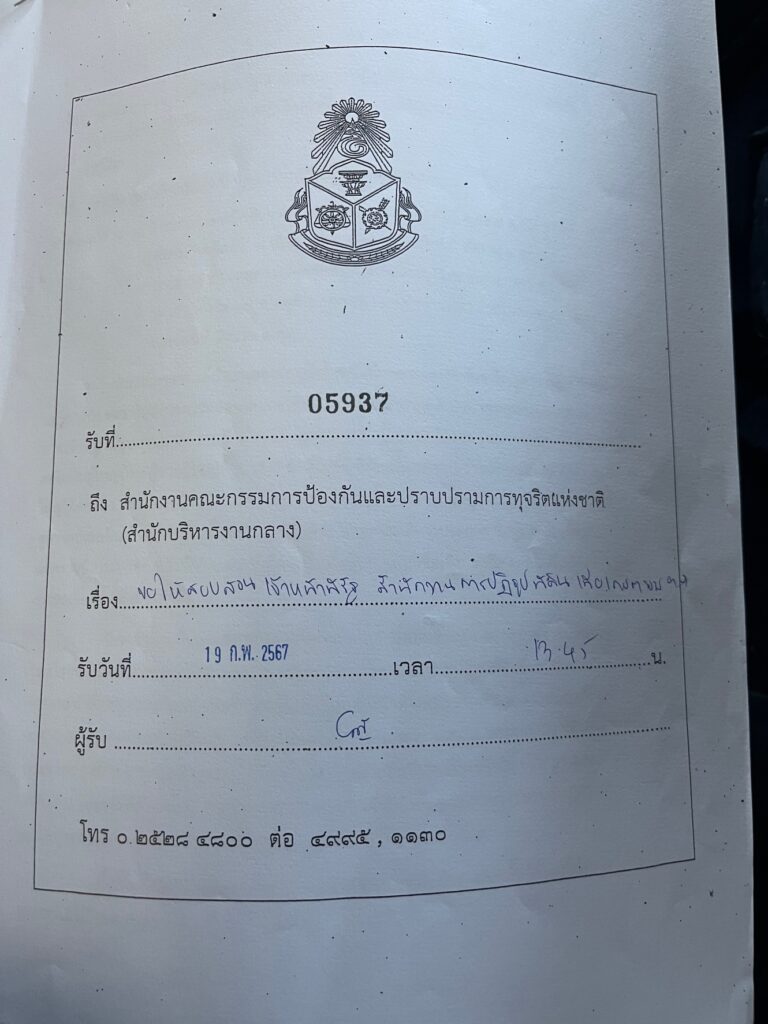 05937
รับที่
ถึง สำนักงานคณะกรรมการป้องกันและปราบปรามการทุจริตแห่งชาติ
(สำนักบริหารงานกลาง)
เรื่อง ขอให้สอบสวน เจ้าหน้าที่รัฐ สำนักงานการปฏิรูปที่ดิน
รับวันที่ 19 ก.พ. 2567 เวลา 13.45 น.
ผู้รับ
โทร ๐ ๒๕๒๘ ๔๘๐๐ ต่อ ๔๙๙๕ , ๑๑๓๐